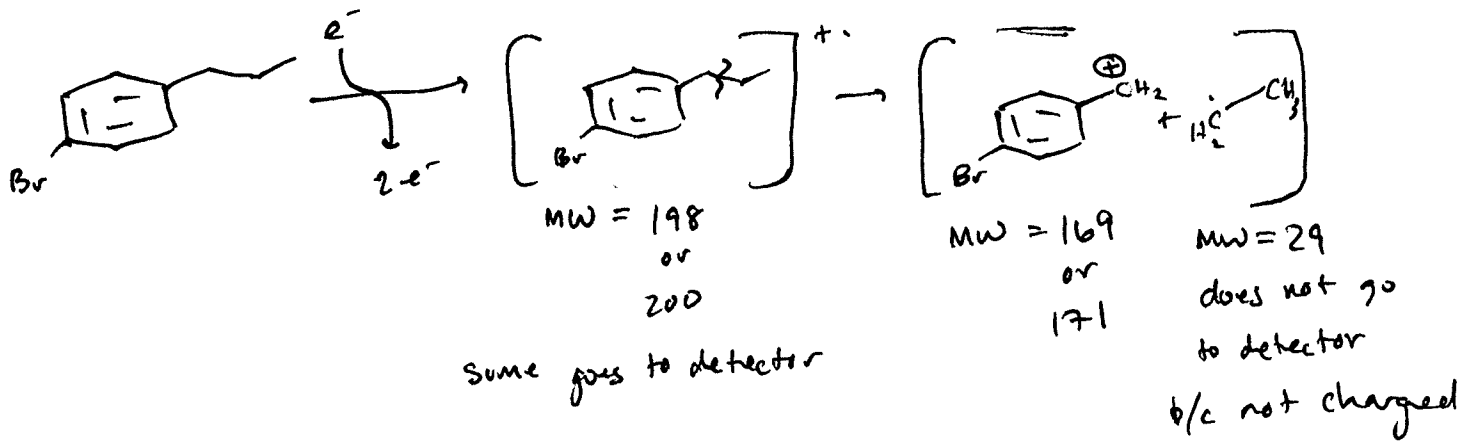 e⁻
Br
2 e⁻
Br
+.
MW = 198
or
200
some goes to detector
⊕
CH₂
+
H₂C
CH₃
Br
MW = 169
or
171
MW = 29
does not go
to detector
b/c not charged